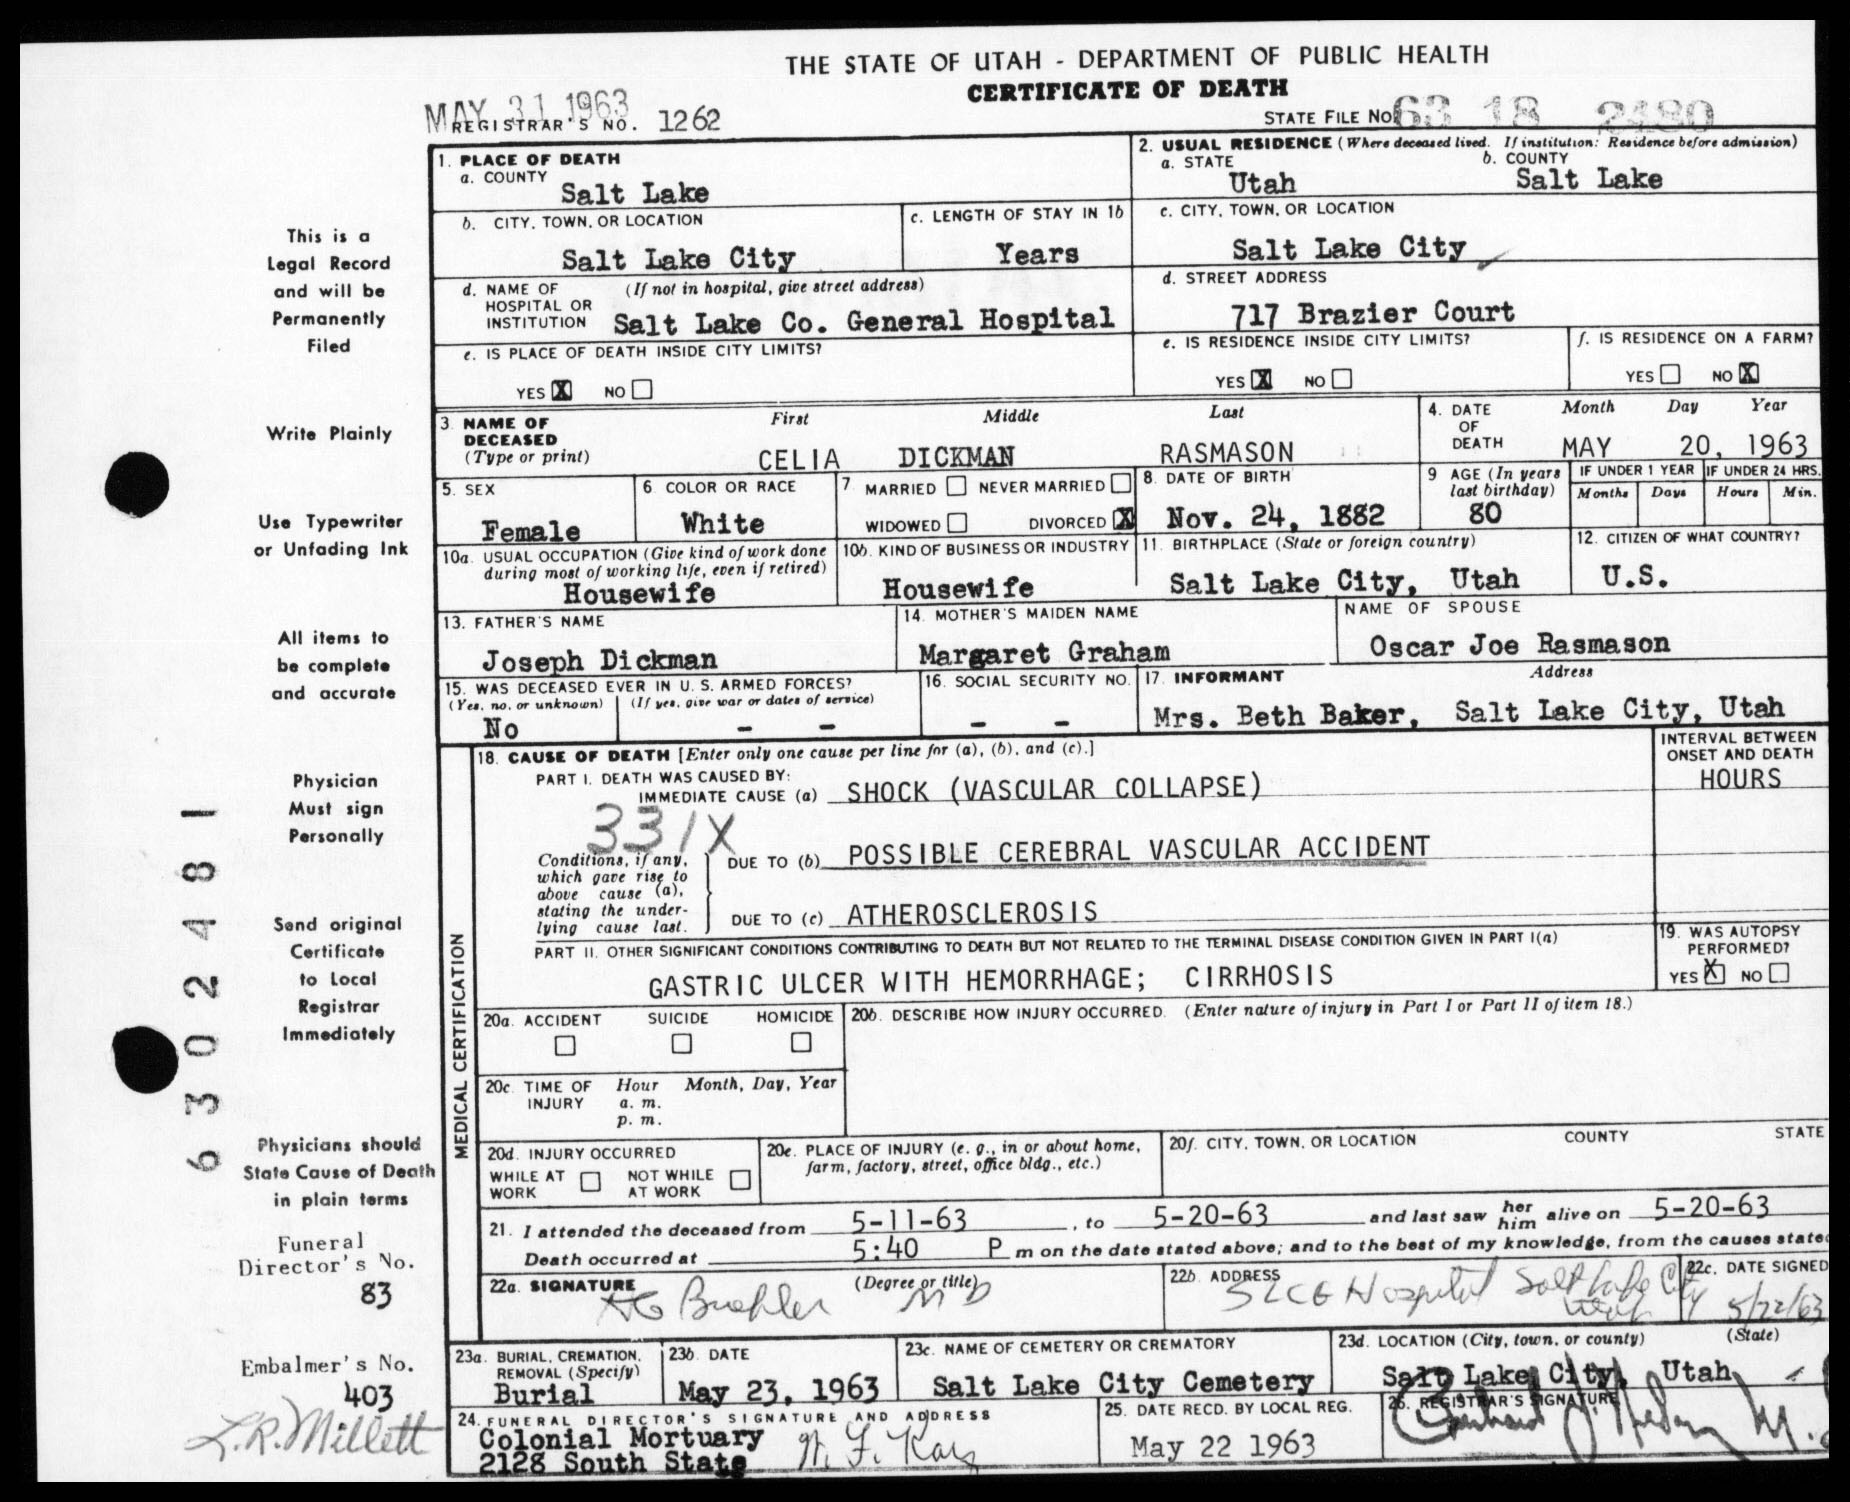 THE STATE OF UTAH - DEPARTMENT OF PUBLIC HEALTH
CERTIFICATE OF DEATH
MAY 31 1963
REGISTRAR'S NO. 1262
STATE FILE NO. 63 18 2480
1. PLACE OF DEATH
a. COUNTY
Salt Lake
2. USUAL RESIDENCE (Where deceased lived. If institution: Residence before admission)
a. STATE
Utah
b. COUNTY
Salt Lake
b. CITY, TOWN, OR LOCATION
Salt Lake City
c. LENGTH OF STAY IN 1b
Years
c. CITY, TOWN, OR LOCATION
Salt Lake City
d. NAME OF HOSPITAL OR INSTITUTION
(If not in hospital, give street address)
Salt Lake Co. General Hospital
d. STREET ADDRESS
717 Brazier Court
e. IS PLACE OF DEATH INSIDE CITY LIMITS?
YES X NO
e. IS RESIDENCE INSIDE CITY LIMITS?
YES X NO
f. IS RESIDENCE ON A FARM?
YES NO X
3. NAME OF DECEASED
(Type or print)
First Middle Last
CELIA DICKMAN RASMASON
4. DATE OF DEATH
Month Day Year
MAY 20, 1963
5. SEX
Female
6. COLOR OR RACE
White
7. MARRIED NEVER MARRIED
WIDOWED DIVORCED X
8. DATE OF BIRTH
Nov. 24, 1882
9 AGE (In years last birthday)
80
IF UNDER 1 YEAR
Months Days
IF UNDER 24 HRS.
Hours Min.
10a. USUAL OCCUPATION (Give kind of work done during most of working life, even if retired)
Housewife
10b. KIND OF BUSINESS OR INDUSTRY
Housewife
11. BIRTHPLACE (State or foreign country)
Salt Lake City, Utah
12. CITIZEN OF WHAT COUNTRY?
U.S.
13. FATHER'S NAME
Joseph Dickman
14. MOTHER'S MAIDEN NAME
Margaret Graham
NAME OF SPOUSE
Oscar Joe Rasmason
15. WAS DECEASED EVER IN U. S. ARMED FORCES?
(Yes, no, or unknown) (If yes, give war or dates of service)
No - -
16. SOCIAL SECURITY NO.
- -
17. INFORMANT Address
Mrs. Beth Baker, Salt Lake City, Utah
18. CAUSE OF DEATH [Enter only one cause per line for (a), (b), and (c).]
INTERVAL BETWEEN ONSET AND DEATH
PART I. DEATH WAS CAUSED BY:
IMMEDIATE CAUSE (a) SHOCK (VASCULAR COLLAPSE) HOURS
331X
Conditions, if any, which gave rise to above cause (a), stating the underlying cause last.
DUE TO (b) POSSIBLE CEREBRAL VASCULAR ACCIDENT
DUE TO (c) ATHEROSCLEROSIS
PART II. OTHER SIGNIFICANT CONDITIONS CONTRIBUTING TO DEATH BUT NOT RELATED TO THE TERMINAL DISEASE CONDITION GIVEN IN PART I(a)
GASTRIC ULCER WITH HEMORRHAGE; CIRRHOSIS
19. WAS AUTOPSY PERFORMED?
YES X NO
MEDICAL CERTIFICATION
20a. ACCIDENT SUICIDE HOMICIDE
20b. DESCRIBE HOW INJURY OCCURRED. (Enter nature of injury in Part I or Part II of item 18.)
20c. TIME OF INJURY
Hour Month, Day, Year
a. m.
p. m.
20d. INJURY OCCURRED
WHILE AT WORK NOT WHILE AT WORK
20e. PLACE OF INJURY (e. g., in or about home, farm, factory, street, office bldg., etc.)
20f. CITY, TOWN, OR LOCATION COUNTY STATE
21. I attended the deceased from 5-11-63, to 5-20-63 and last saw her him alive on 5-20-63
Death occurred at 5:40 P m on the date stated above; and to the best of my knowledge, from the causes stated
22a. SIGNATURE (Degree or title)
Buehler MD
22b. ADDRESS
SLCG Hospital Salt Lake City Utah
22c. DATE SIGNED
5/22/63
23a. BURIAL, CREMATION, REMOVAL (Specify)
Burial
23b. DATE
May 23, 1963
23c. NAME OF CEMETERY OR CREMATORY
Salt Lake City Cemetery
23d. LOCATION (City, town, or county) (State)
Salt Lake City, Utah
24. FUNERAL DIRECTOR'S SIGNATURE AND ADDRESS
Colonial Mortuary
2128 South State
25. DATE RECD. BY LOCAL REG.
May 22 1963
26. REGISTRAR'S SIGNATURE
This is a
Legal Record
and will be
Permanently
Filed
Write Plainly
Use Typewriter
or Unfading Ink
All items to
be complete
and accurate
Physician
Must sign
Personally
Send original
Certificate
to Local
Registrar
Immediately
Physicians should
State Cause of Death
in plain terms
Funeral
Director's No.
83
Embalmer's No.
403
L.R. Millett
63 02481